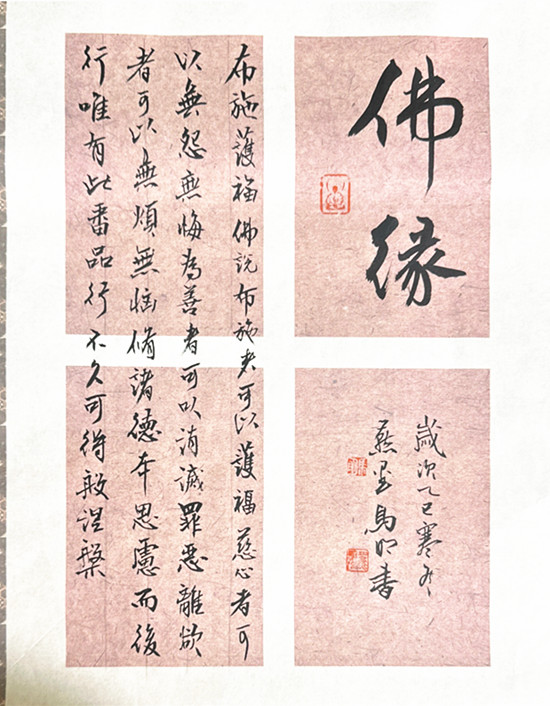 佛緣
布施護福佛說布施者可以護福慈心者可
以無怨無悔為善者可以消滅罪惡離欲
者可以無煩無惱脩諸德本思慮而後
行唯有此番品行不久可得般涅槃
歲次乙巳寒冬
燕馬書